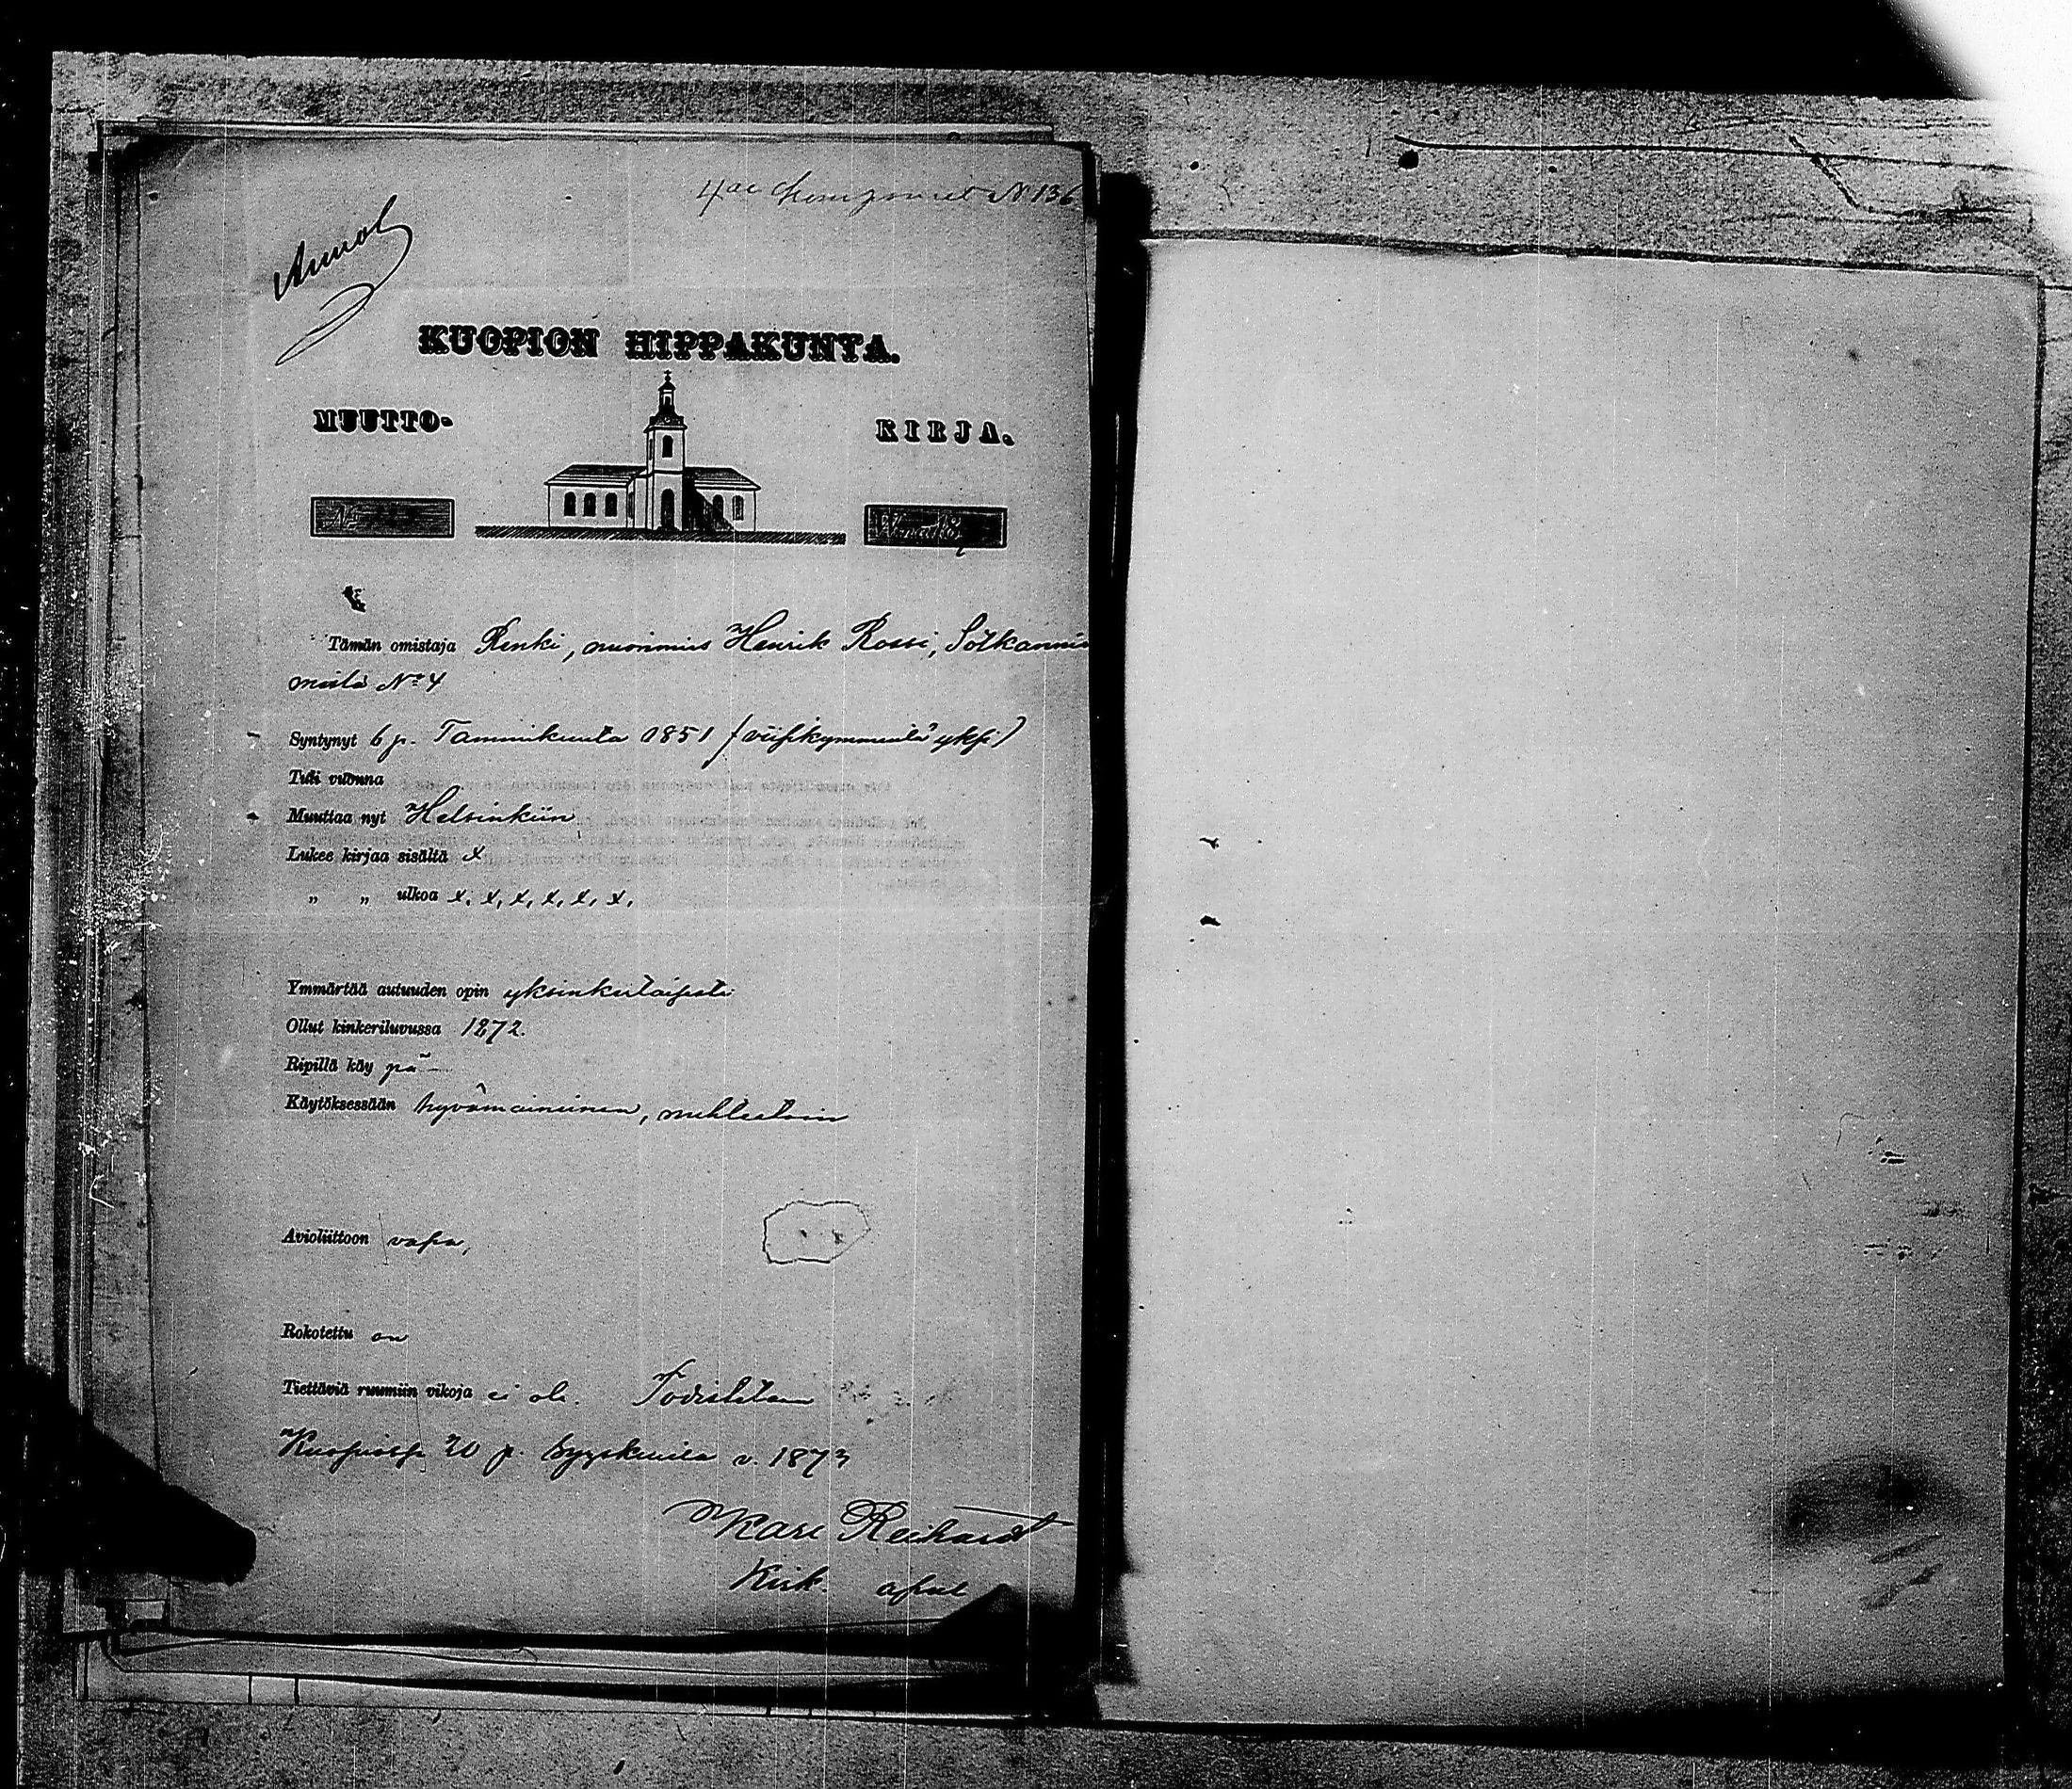 4de N 136
Anmäl
KUOPION HIPPAKUNTA.
MUUTTO- KIRJA.
No
Tämän omistaja Renki, nuorimies Henrik Rossi, Sotkannie
mälä No 4
Syntynyt 6 p. Tammikuuta 1851 (viisikymmentä yksi)
Tuli vuonna
Muuttaa nyt Helsinkiin
Lukee kirjaa sisältä x
„ „ ulkoa x, x, x, x, x, x,
Ymmärtää autuuden opin yksinkertaisesti
Ollut kinkeriluvussa 1872.
Ripillä käy
Käytöksessään hyvämaineinen, nuhteetoin
Avioliittoon vapa,
Rokotettu on
Tiettäviä ruumiin vikoja ei ole. Todistetaan
Kuopiossa 20 p. Syyskuuta v. 1873
Karl Reinhardt
Kirk. apul